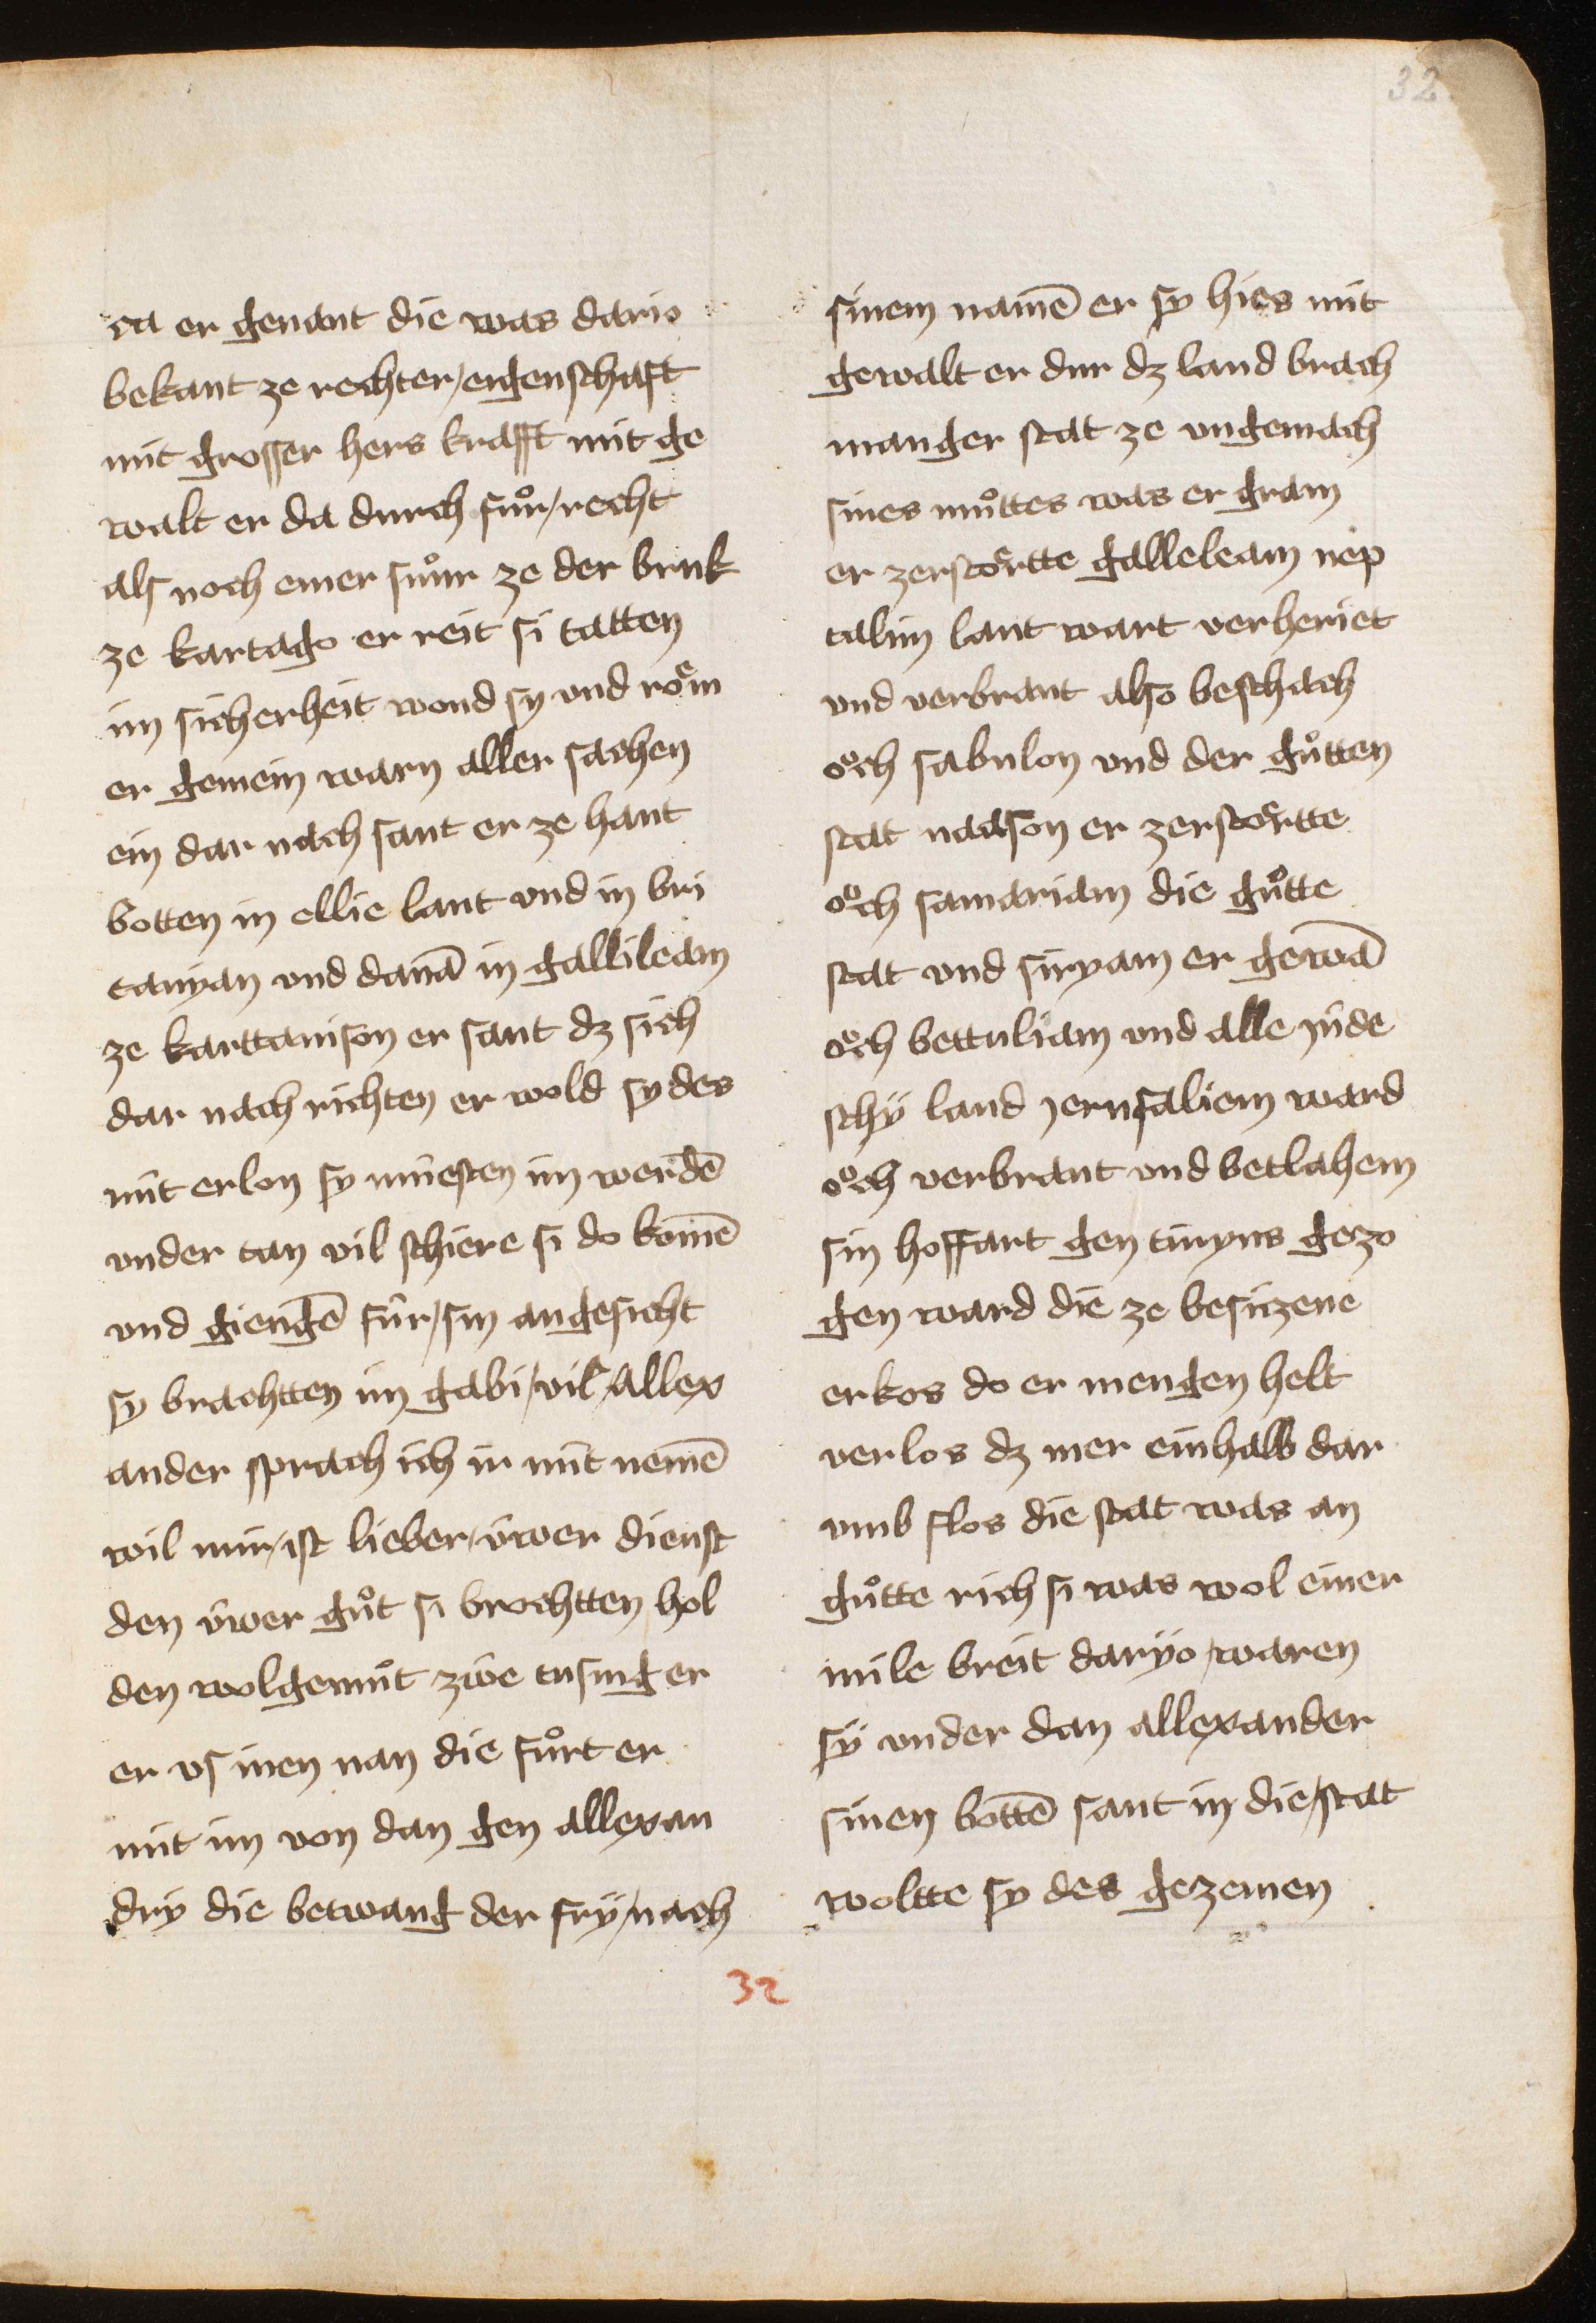 32
ca er genant die was dario
bekant ze rechter / eigenschaft
mit grosser hers krafft mit ge
walt er da durch fuͦr / recht
als noch einer snuͦr ze der bruk
ze kartago er reit si tatten
im sicherheit wond sy vnd roͤm
er gemein warn aller sachen
ein dar nach sant er ze hant
botten in ellie lant vnd in bri
tanyan vnd danā in gallileam
ze karttanison er sant dz sich
dar nach richten er wold sy des
nit erlon sy muͤsten im werdē
vnder tan vil schiere si do komē
vnd giengē fuͤr / sin angesicht
sy brachtten im gabi / vil / allex
ander sprach ich ir nit nemē
wil mir / ist lieber / v́wer dienst
den v́wer guͦt si brochtten hol
den wolgemuͦt zwe tusing er
er vs inen nan die fuͦrt er
mit im von dan gen allexan
dry die betwang der fry / nach
sinem namē er sy hies mit
gewalt er dur dz land brach
manger stat ze vngemach
sines muͦttes was er gram
er zerstoͤrtte galleleam nep
talim lant wart verheriet
vnd verbrant also beschach
oͮch sabulon vnd der guͦtten
stat naason er zerstoͤrtte
oͮch samariam die guͦtte
stat vnd siryam er gewā
oͮch bettuliam vnd alle jude
schÿ land jerusaliem ward
oͮch verbrant vnd betlahem
sin hoffart gen tiryus gezo
gen ward die ze besiczene
erkos do er mengen helt
verlos dz mer einhalb dar
vmb flos die stat was an
guͦtte rich si was wol einer
mile breit darÿo / waren
sÿ vnder dan allexander
sinen bottē sant in die / stat
woltte sy des gezemen
32